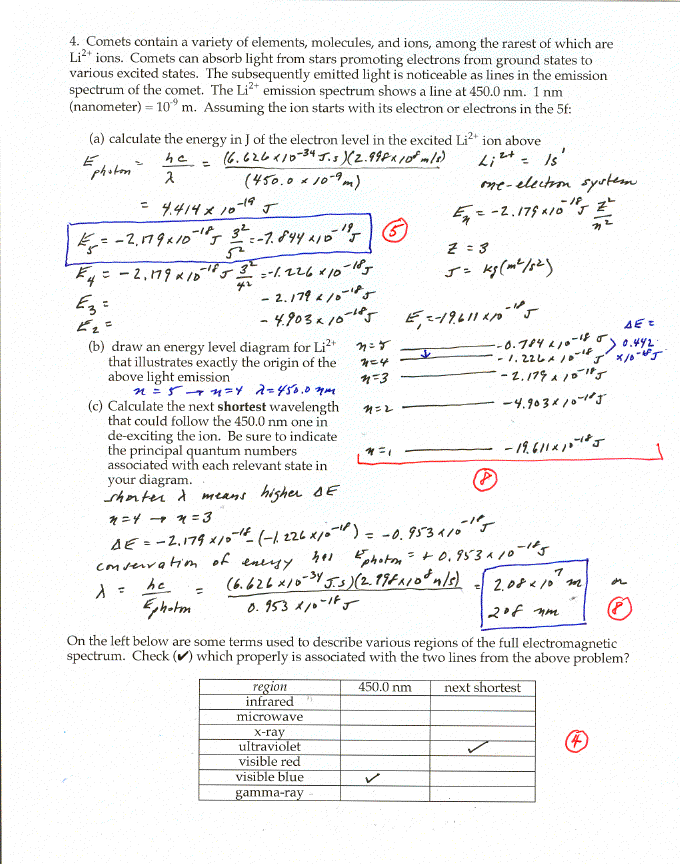 4. Comets contain a variety of elements, molecules, and ions, among the rarest of which are
Li²⁺ ions. Comets can absorb light from stars promoting electrons from ground states to
various excited states. The subsequently emitted light is noticeable as lines in the emission
spectrum of the comet. The Li²⁺ emission spectrum shows a line at 450.0 nm. 1 nm
(nanometer) = 10⁻⁹ m. Assuming the ion starts with its electron or electrons in the 5f:
(a) calculate the energy in J of the electron level in the excited Li²⁺ ion above
E photon = hc/λ = (6.626 x 10⁻³⁴ J.s)(2.998 x 10⁸ m/s) / (450.0 x 10⁻⁹ m)
Li²⁺ = 1s¹
one-electron system
= 4.414 x 10⁻¹⁹ J
Eₙ = -2.179 x10⁻¹⁸ J Z²/n²
E₅ = -2.179 x10⁻¹⁸ J 3²/5² = -7.844 x10⁻¹⁹ J
5
Z = 3
E₄ = -2.179 x 10⁻¹⁸ J 3²/4² = -1.226 x10⁻¹⁸ J
J = kg(m²/s²)
E₃ = - 2.179 x 10⁻¹⁸ J
E₂ = - 4.903 x 10⁻¹⁸ J
E₁ = -19.611 x10⁻¹⁸ J
(b) draw an energy level diagram for Li²⁺
that illustrates exactly the origin of the
above light emission
n = 5 → n = 4 λ = 450.0 nm
ΔE =
n = 5 -0.784 x10⁻¹⁸ J 0.442
n = 4 -1.226 x 10⁻¹⁸ J x10⁻¹⁸ J
n = 3 -2.179 x 10⁻¹⁸ J
n = 2 -4.903 x 10⁻¹⁸ J
n = 1 -19.611 x 10⁻¹⁸ J
8
(c) Calculate the next shortest wavelength
that could follow the 450.0 nm one in
de-exciting the ion. Be sure to indicate
the principal quantum numbers
associated with each relevant state in
your diagram.
shorter λ means higher ΔE
n = 4 → n = 3
ΔE = -2.179 x10⁻¹⁸ - (-1.226 x10⁻¹⁸) = -0.953 x10⁻¹⁸ J
conservation of energy has E photon = + 0.953 x 10⁻¹⁸ J
λ = hc/E photon = (6.626 x10⁻³⁴ J.s)(2.998 x10⁸ m/s) / 0.953 x10⁻¹⁸ J = 2.08 x 10⁻⁷ m or
208 nm
8
On the left below are some terms used to describe various regions of the full electromagnetic
spectrum. Check (✔) which properly is associated with the two lines from the above problem?
region 450.0 nm next shortest
infrared
microwave
x-ray
ultraviolet ✓
4
visible red
visible blue ✓
gamma-ray